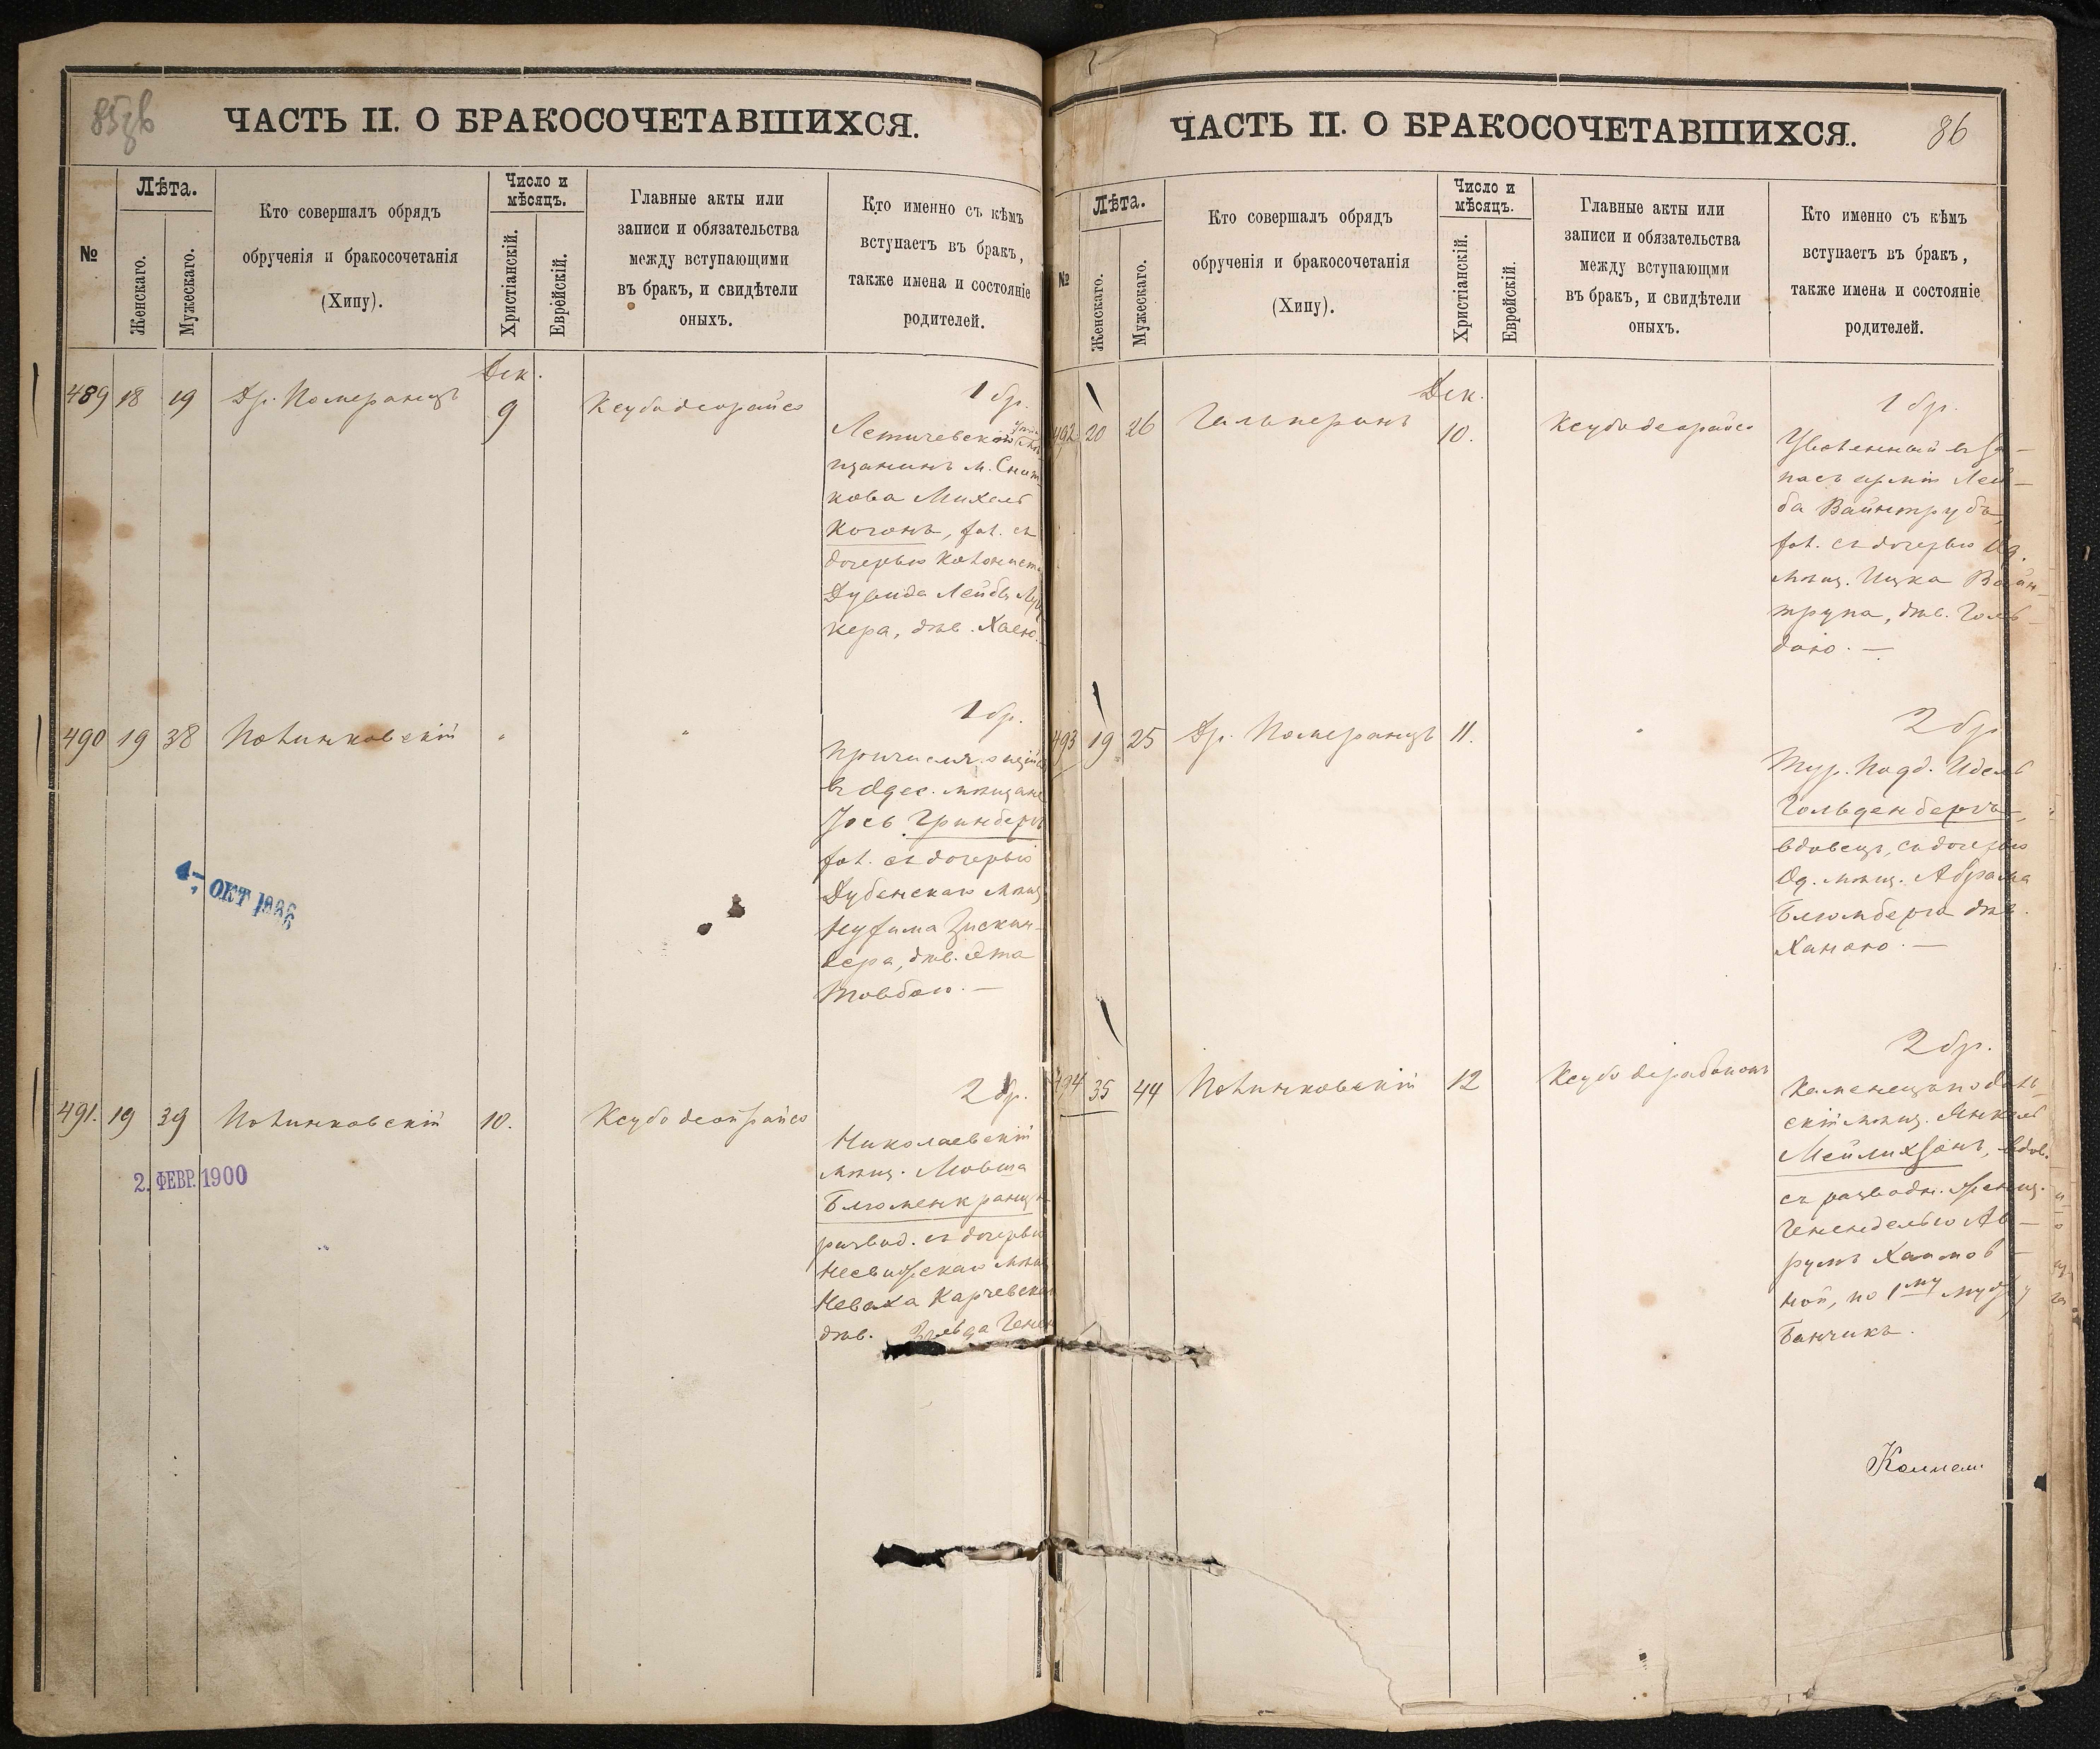 85об
ЧАСТЬ II. О БРАКОСОЧЕТАВШИХСЯ.
№
Лѣта.
Женскаго.
Мужескаго.
Кто совершалъ обрядъ
обрученія и бракосочетанія
(Хипу).
Число и
мѣсяцъ.
Христіанскій.
Еврейскій.
Главные акты или
записи и обязательства
между вступающими
въ бракъ, и свидѣтели
оныхъ.
Кто именно съ кѣмъ
вступаетъ въ бракъ,
также имена и состояніе
родителей.
489 18 19 Др. Померанцъ
Дек.
9
Ксубо деорайсо
1 бр.
Летичевской
щанинъ м. Снит-
кова Михель
Когонъ, хол. съ
дочерью колонист
Дувида Лейбы
кера, дѣв. Хаею.
490 19 38 Полинковскій
"
"
1 бр.
Причисл.
въ Одес. мѣщане
Іось Гринбергъ
хол. съ дочерью
Дубенскаго мѣщ.
Нухима Зискин-
дѣв. Эта
Товбою. —
4 - ОКТ 1886
491. 19 39 Полинковскій
10.
Ксубо деорайсо
2 бр.
Николаевскій
мѣщ. Мовша
Блюменкранцъ
развод. съ дочерью
Несвижскаго мѣщ.
Неваха Карчевска
дѣв.
2. ФЕВР. 1900
ЧАСТЬ II. О БРАКОСОЧЕТАВШИХСЯ.
86
№
Лѣта.
Женскаго.
Мужескаго.
Кто совершалъ обрядъ
обрученія и бракосочетанія
(Хипу).
Число и
мѣсяцъ.
Христіанскій.
Еврейскій.
Главные акты или
записи и обязательства
между вступающми
въ бракъ, и свидѣтели
оныхъ.
Кто именно съ кѣмъ
вступаетъ въ бракъ,
также имена и состояніе
родителей.
492 20 26 Гальперинъ
Дек.
10.
Ксубо деорайсо
1 бр.
Уволенный въ за-
пасъ арміи Лей-
ба Вайнтрубъ,
хол. съ дочерью Од.
мѣщ. Ицка Вайн-
трупа, дѣв. Голь-
дою. —
493 19 25 Др. Померанцъ 11.
"
2 бр.
Тур. подд. Идель
Гольденбергъ,
вдовецъ, съ дочерью
Од. мѣщ. Абрама
Блюмберга дѣв.
Ханою. —
494 35 44 Полинковскій 12
Ксубо дерабононъ
2 бр.
Каменецподоль-
скій мѣщ. Янкель
Мейлихзонъ, вдов.
съ разводн. женщ.
Генендлею Ав-
румъ Хаимов-
ной, по 1му мужу
Банчикъ.